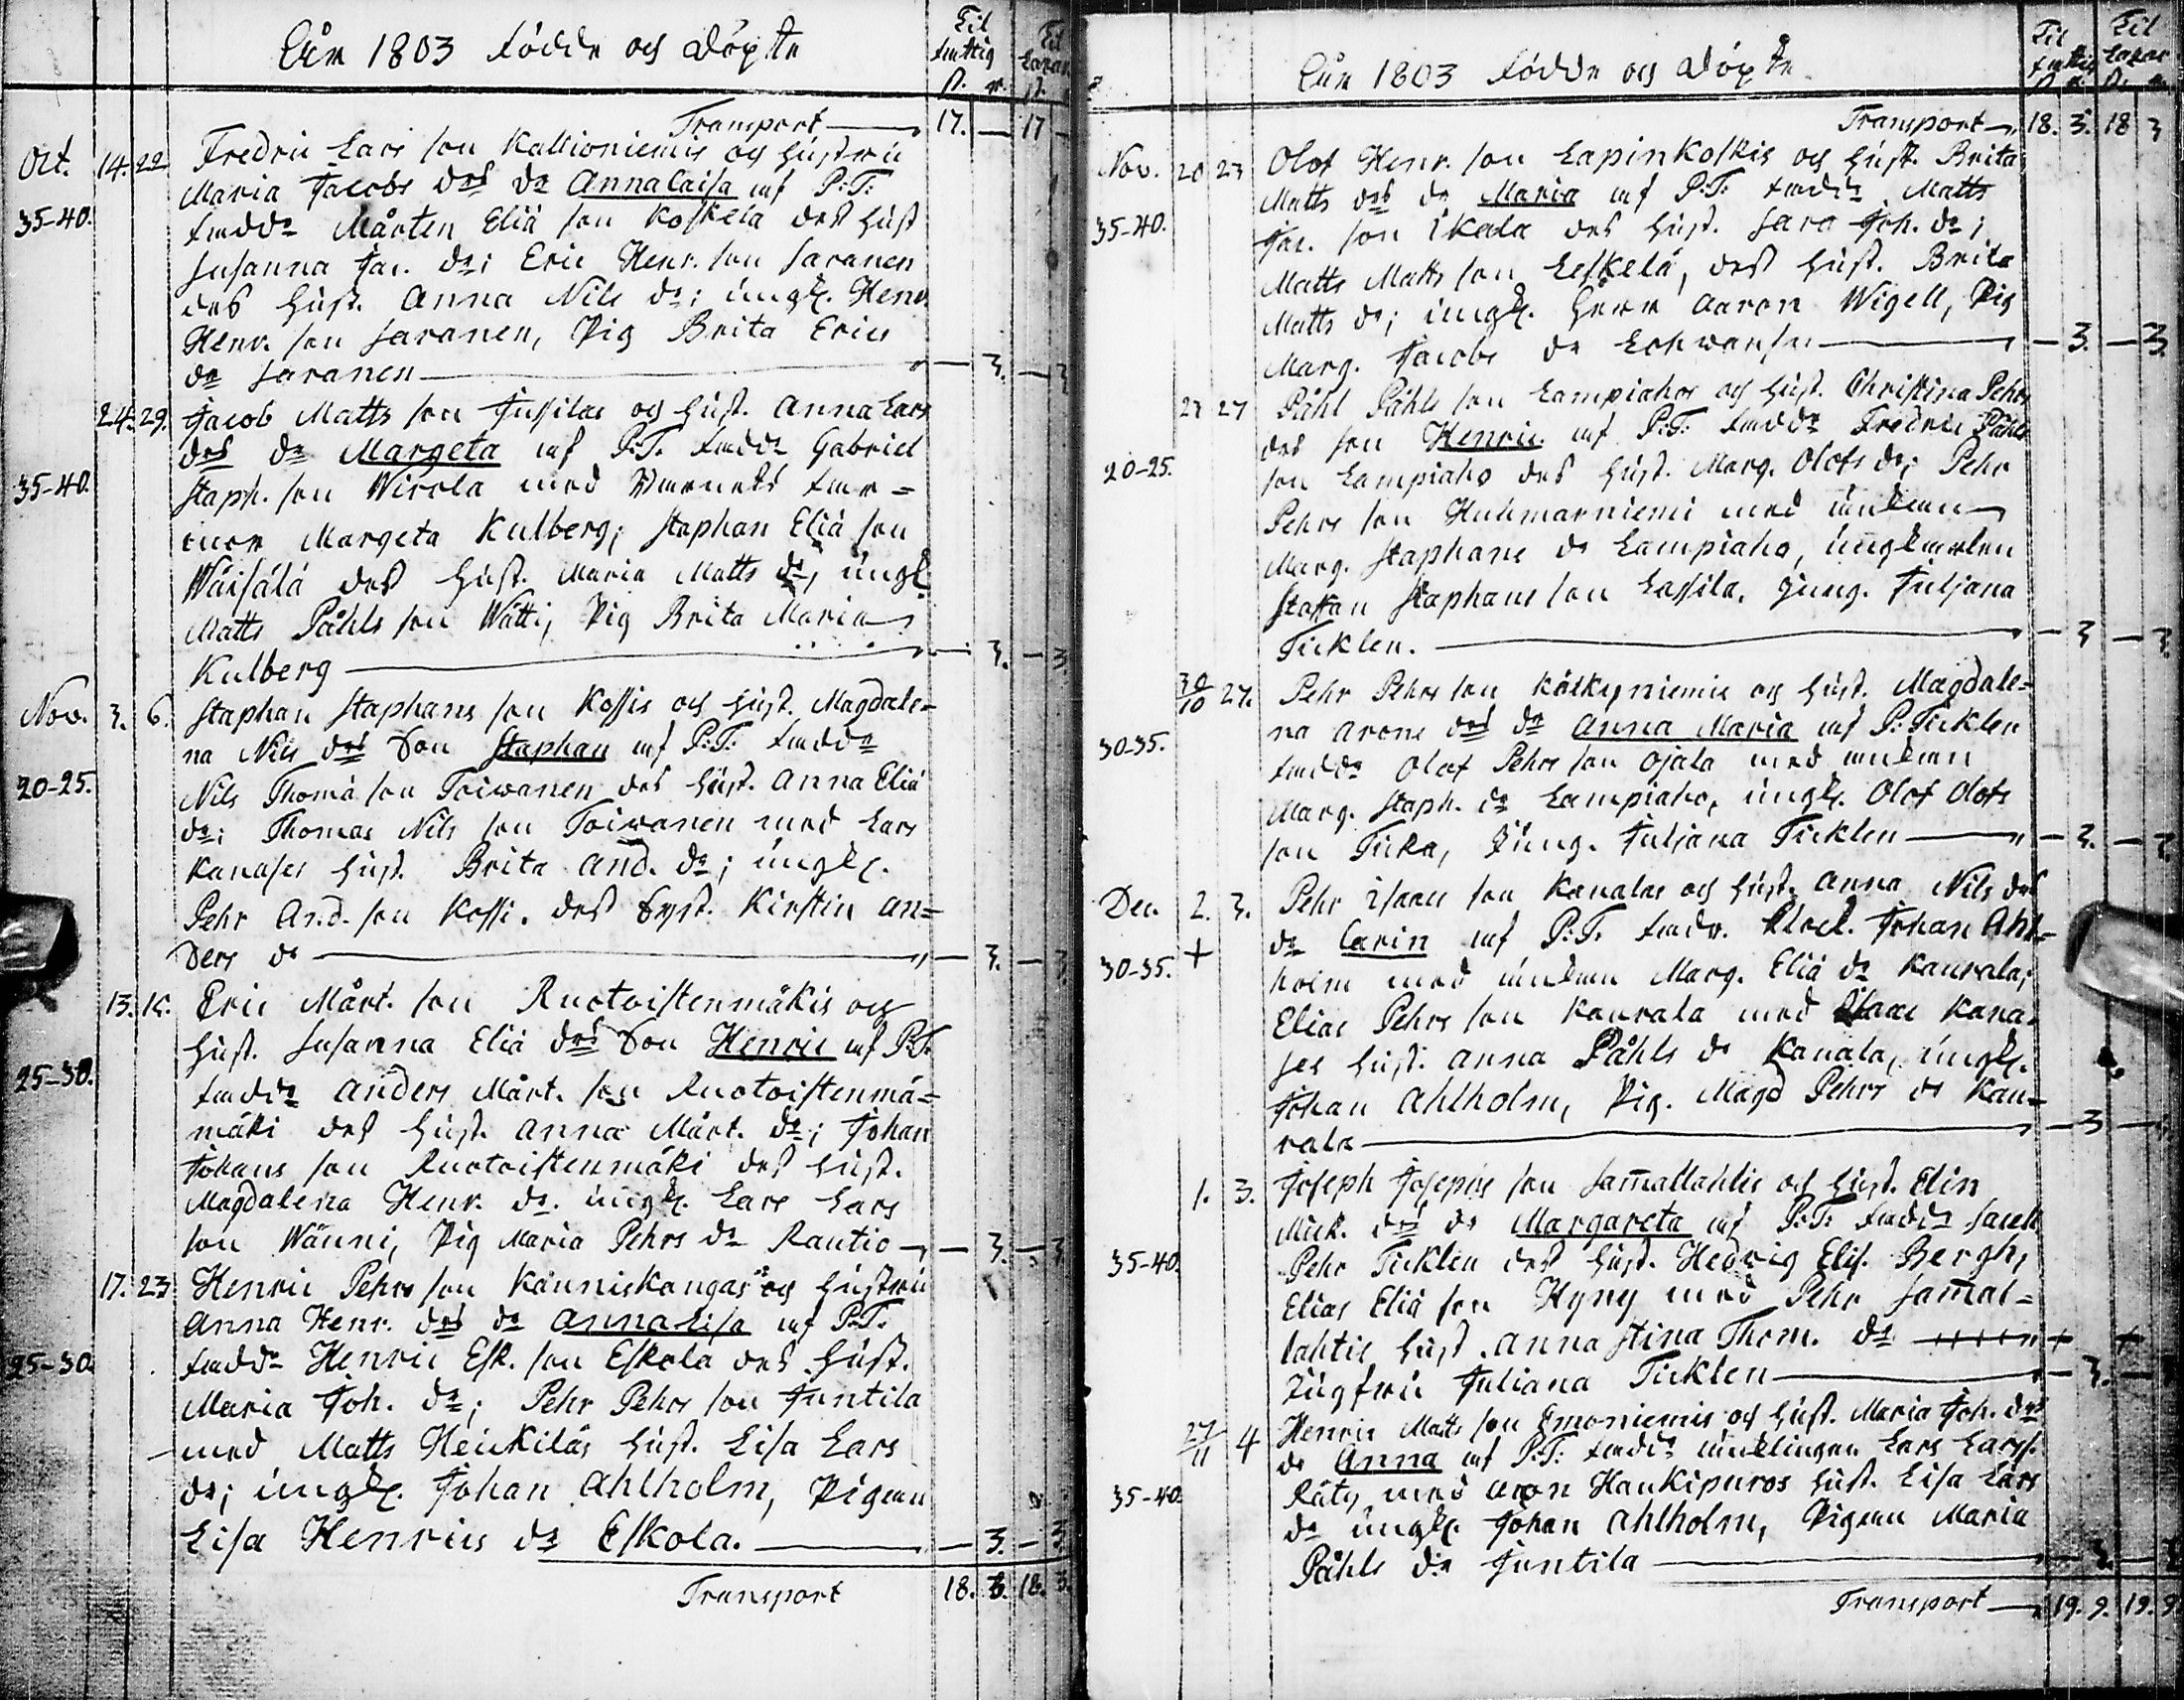 Åhr 1803 födde och döpte
Til
fattig
ß. rst.
Til
Lazar
ß.
Transport — 17. — 17 —
Oct. 14. 22 Fredric Lars son Kallioniemis och hustru
Maria Jacobs des dr Anna Caisa af P:T:
35-40. faddr Mårten Eliä son Koskela des hust
Susanna Jac. dr; Eric Henr. son Saranen
des hust. Anna Nils dr; ungk. Henr.
Henr. son Saranen, Pig Brita Erics
dr Saranen — 3. — 3
24. 29. Jacob Matts son Jussilas och hust. Anna Lars
des dr Margeta af P:T. faddr Gabriel
35-40. Staph. son Wirola med
Margeta Kulberg; Staphan Eliä son
Wäisälä des hust. Maria Matts dr, ungk
Matts Påhls son Wätti, Pig Brita Maria
Kulberg — 3. — 3
Nov. 3. 6. Staphan Staphans son Kossis och hust. Magdale=
na Nils des Son Staphan af P:T: faddr
20-25. Nils Thomä son Toiwanen des hust. Anna Eliä
dr; Thomas Nils son Toiwanen med Lars
Kanases hust. Brita And. dr; ungk.
Pehr And. son Kossi. des Syst. Kirstin An=
ders dr — 3. — 3.
13. 15. Eric Mårt. son Ruotoistenmäkis och
hust. Susanna Eliä des Son Henric af P:T.
25-30. faddr Anders Mårt. son Ruotoistenmä=
mäki des hust. Anna Mårt. dr; Johan
Johans son Ruotoistenmäki des hust.
Magdalena Henr. dr. ungk. Lars Lars
son Wänni, Pig Maria Pehrs dr Rautio — 3. — 3
17. 23 Henric Pehrs son Känniskangas och hustru
Anna Henr. des dr Anna Lisa af P:T.
25-30. faddr Henric Esk. son Eskola des hust.
Maria Joh. dr; Pehr Pehrs son Juntila
med Matts Heickiläs hust. Lisa Lars
dr; ungk. Johan Ahlholm, Pigan
Lisa Henrics dr Eskola. — 3. — 3.
Transport 18. 3. 18. 3.
Åhr 1803 födde och döpte
Til
fattig
ß. r.
Til
Lazar
ß.
Transport — 18. 3. 18 3
Nov. 20 23 Olof Henr. son Lapinkoskis och hust. Brita
Matts des dr Maria af P:T: faddr Matts
35-40. Jac. son Ikala des hust. Sara Joh. dr;
Matts Matts son Leskelä, des hust. Brita
Matts dr; ungk. Herr Aaron Wigell, Pig
Marg. Jacobs dr — 3. — 3.
27 Påhl Påhls son Lampiahos och hust. Christina Pehrs
des son Henric af P:T: faddr Fredric Påhls
20-25. son Lampiaho des hust. Marg. Olofs dr; Pehr
Pehrs son Huhmarniemi med änkan
Marg. Staphans dr Lampiaho, ungkarlen
Staffan Staphans son Lassila. Jung. Juljana
Ticklen. — 3 — 3.
30/10 27. Pehr Pehrs son Kälkyniemis och hust. Magdale=
na Arons des dr Anna Maria af P: Ticklen
30-35. faddr Olof Pehrs son Ojala med änkan
Marg. Staph. dr Lampiaho, ungk. Olof Olofs
son Ticka, Jung. Juljana Ticklen — 3. — 3.
Dec. 2. 3. Pehr Isaac son Kanalas och hust. Anna Nils des
+ dr Carin af P:T. faddr. Johan Ahl=
30-35. holm med änkan Marg. Eliä dr Kaurala;
Elias Pehrs son Kaurala med Isaac Kana=
las hust. Anna Påhls dr Kanala, ungk.
Johan Ahlholm, Pig. Magd Pehrs dr Kau=
rala — 3 —
1. 3. Joseph Josephs son Sam̄allahtis och hust. Elin
Mick. des dr Margareta af P:T: faddr Sacell
35-40. Pehr Ticklen des hust. Hedvig Elis. Bergh,
Elias Eliä son Hyny med Pehr Sam̄al=
lahtis hust. Anna Stina Thom. dr
Jungfru Juliana Ticklen — 3. —
27/11 4 Henric Matts son Emoniemis och hust. Maria Joh. des
dr Anna af P:T: faddr Lars Larss.
35-40 Räty med Aron Haukipuros hust. Lisa Lars
dr ungk. Johan Ahlholm, Pigan Maria
Påhls dr Juntila — 3. —
Transport — 19. 9. 19. 9.